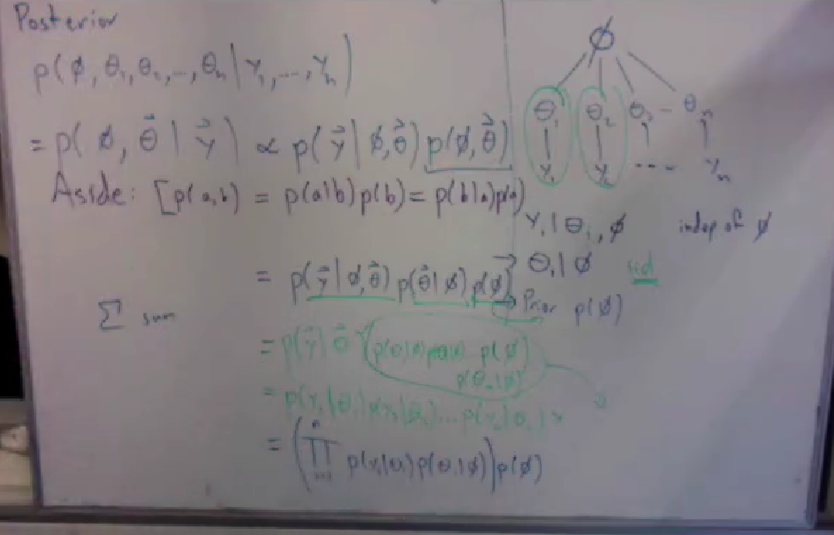 Posterior
p(ϕ, θ₁, θ₂, ..., θₙ | Y₁, ..., Yₙ)
= p(ϕ, θ⃗ | y⃗) ∝ p(y⃗ | ϕ, θ⃗) p(ϕ, θ⃗)
Aside: [p(a,b) = p(a|b)p(b) = p(b|a)p(a)]
= p(y⃗ | ϕ, θ⃗) p(θ⃗ | ϕ) p(ϕ)
Σ sum
= p(y⃗ | θ⃗
p(ϕ)
p(θₙ|ϕ)
= p(Y₁|θ₁)
= (∏ p(Yᵢ|θᵢ)p(θᵢ|ϕ)) p(ϕ)
ϕ
θ₁ θ₂ θ₃ - θₙ
Y₁ Y₂ ---- Yₙ
Y₁ | θ₁, ϕ indep of ϕ
→ θ₁ | ϕ iid
→ Prior p(ϕ)